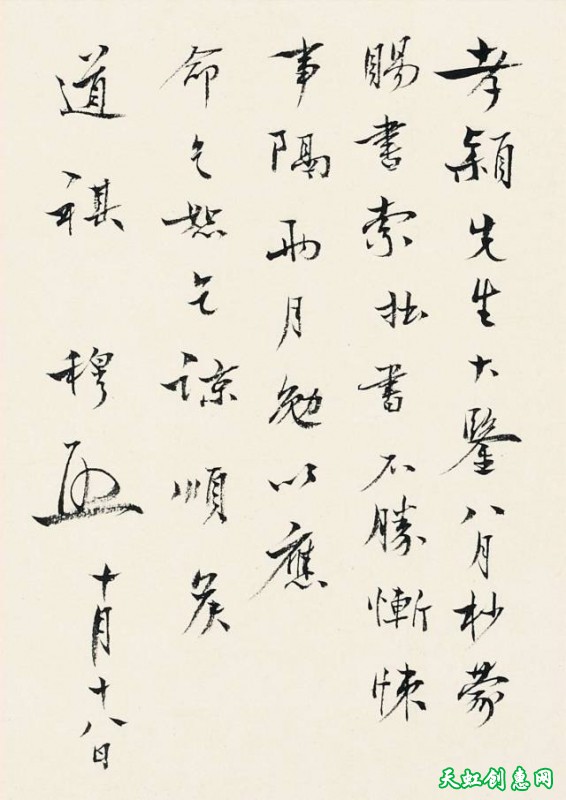 孝颖先生大鑒八月杪蒙
賜書索拙書不勝慚悚
事隔兩月勉以應
命乞恕乞諒順矦
道祺 穆熙
十月十八日
天虹创惠网